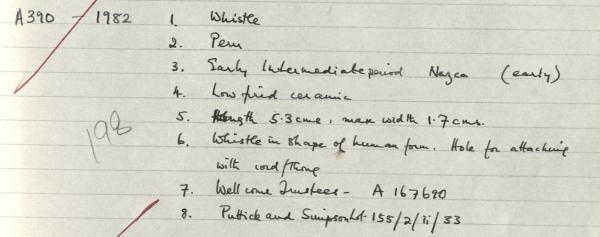 A390 - 1982 1. Whistle
2. Peru
3. Early Intermediate period Nazca (early)
4. Low fired ceramic
5. Length 5.3 cms, max width 1.7 cms.
198
6. Whistle in shape of human form. Hole for attaching
with cord/thong
7. Wellcome Trustees - A 167690
8. Puttick and Simpson Lot 155/2/ii/33